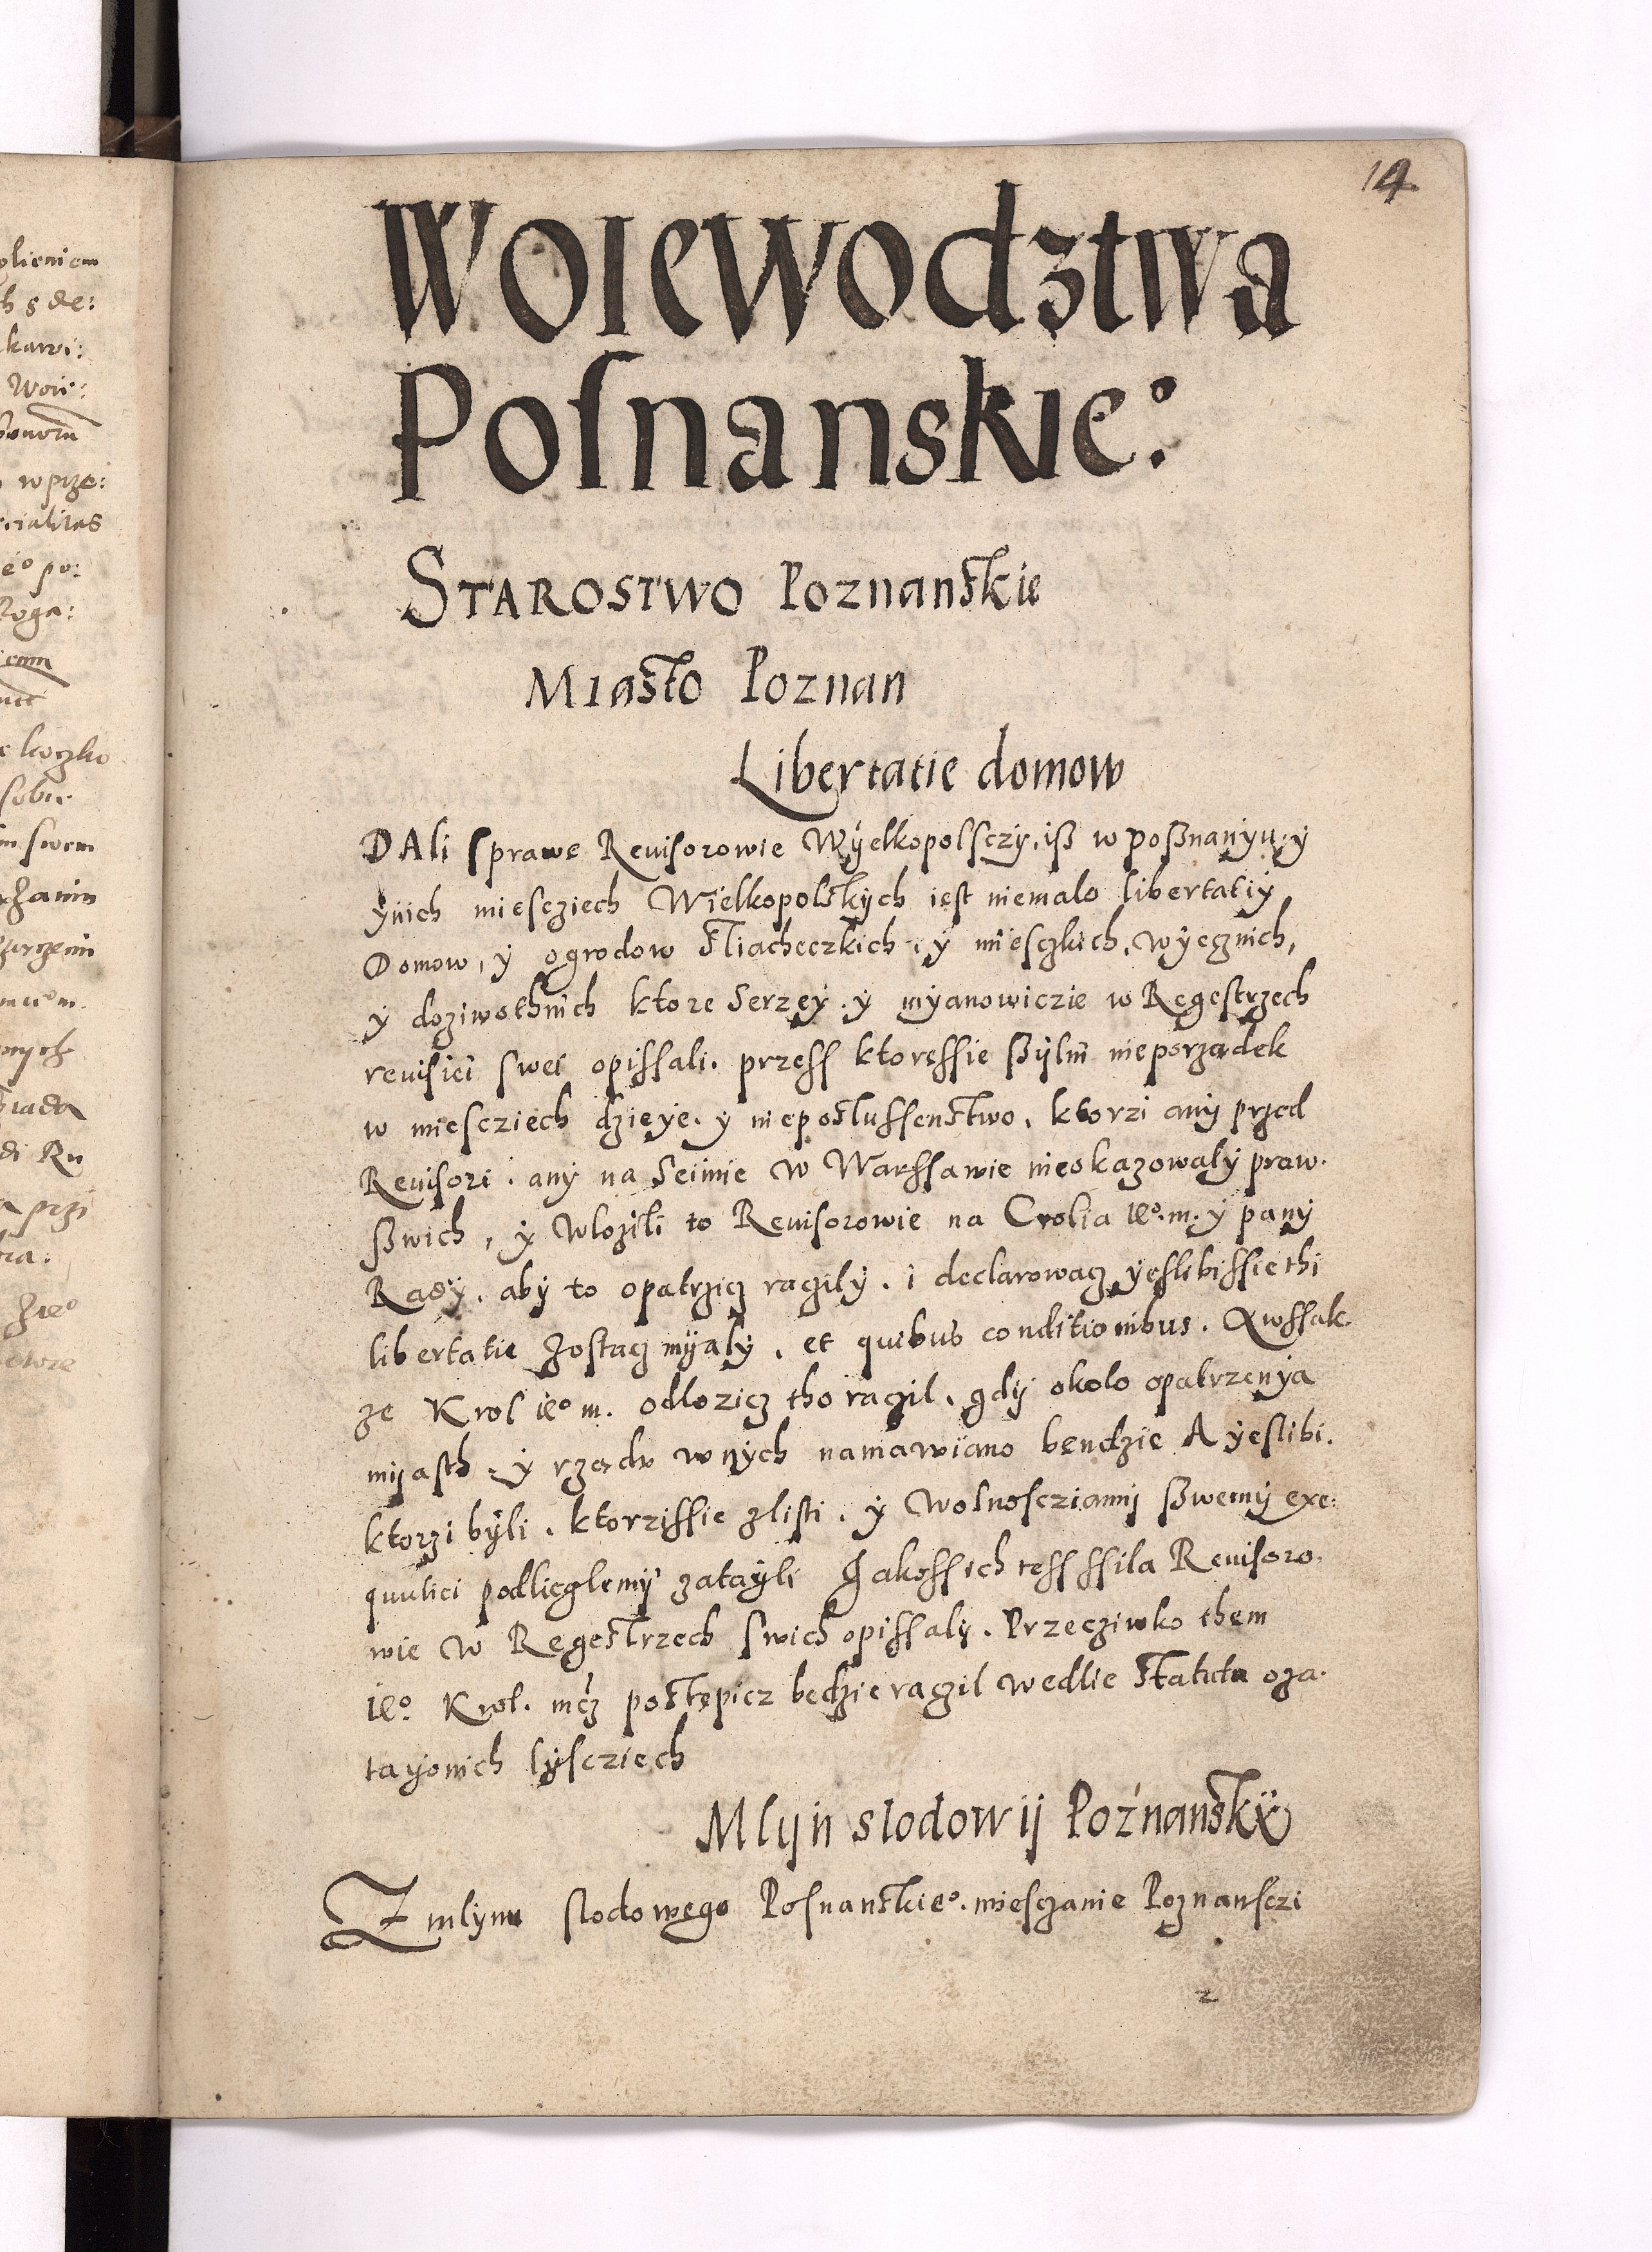 14
Woiewodztwa
Posnanskie°.
Starostwo Poznanskie
Miasto Poznan
Libertatie domow
DAli sprawe Reuisorowie Wÿelkopolsczÿ, iß w poßnanÿu, ÿ
ÿnich miescziech Wielkopolskÿch iest niemalo libertatiÿ
Domow, ÿ ogrodow sliacheczkich, ÿ miesczkich, wÿecznich,
ÿ doziwothnich ktore serzeÿ. ÿ mÿanowiczie w Regestrzech
reuisiei swei opissali. przess ktoressie ßÿlni nieporzadek
w miescziech dzieÿe. ÿ nieposlussenstwo, ktorzi anÿ przed
Reuisori. anÿ na Seimie w Warssawie nieokazowalÿ praw.
ßwich, ÿ wlozili to Reuisorowie na Crolia ie°. m. ÿ panÿ
Radÿ. abÿ to opatrzicz racziłÿ. i declarowacz ÿeslibissie thi
libertatie zostacz mÿalÿ. et quibus conditionibus. Awssak.
ze Krol ie° m. odlozicz tho raczil, gdÿ okolo opatrzenÿa
mÿasth. ÿ rzadu wnÿch namawiano bendzie A ÿeslibi.
ktorzi bÿli. ktorzissie zlisti. ÿ wolnosciamÿ ßwemÿ exe:
qutiei podlieglemÿ zataÿli Jakossich tess ssila Reuisoro.
wie w Regestrzech swich opissalÿ. Przecziwko them
ie° Krol. mcz postepicz bedzie raczil wedlie statutu oza.
taÿonich lÿscziech
Mlÿn slodowÿ Poznanskÿ
Z mlÿnu slodowego Posnanskie°. miesczanie Poznansczi